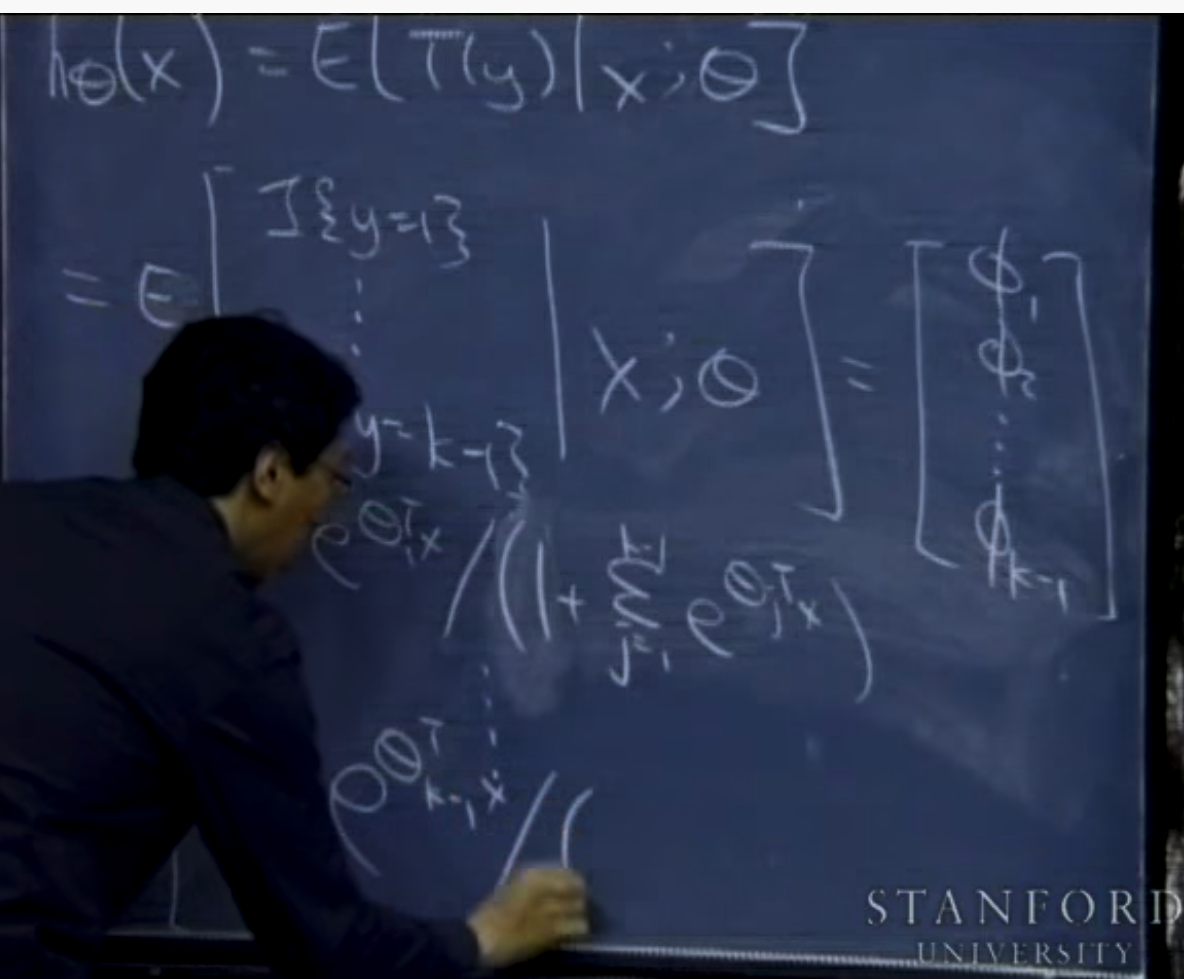 hθ(x) = E[T(y)|x;θ]
= E[ 1{y=1} ⋮ y=k-1} | x;θ ] = [ ϕ₁ ϕ₂ ⋮ ϕₖ₋₁ ]
e^{θ₁ᵀx} / (1 + Σ_{j=1}^{k-1} e^{θⱼᵀx})
⋮
e^{θₖ₋₁ᵀx} / (
STANFORD
UNIVERSITY